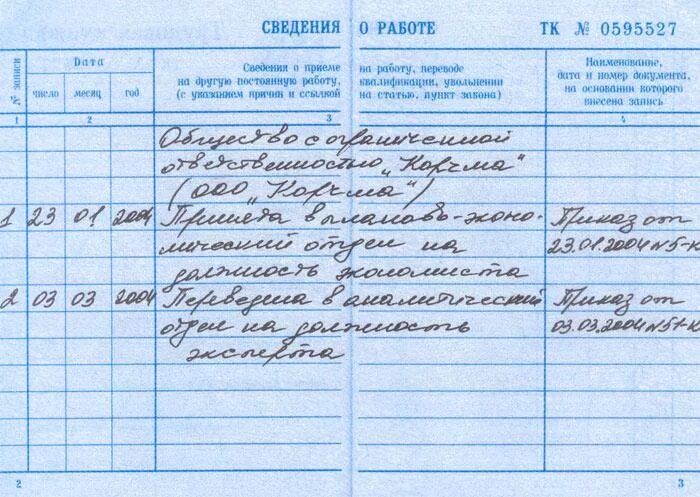 СВЕДЕНИЯ О РАБОТЕ ТК № 0595527
№ записи
Дата
число месяц год
Сведения о приеме на работу, переводе
на другую постоянную работу, квалификации, увольнении
(с указанием причин и ссылкой на статью, пункт закона)
Наименование,
дата и номер документа,
на основании которого
внесена запись
1 2 3 4
Общество с ограниченной
ответственностью „Корчма“
(ООО „Корчма“)
1 23 01 2004 Принята в планово-эконо- Приказ от
мический отдел на 23.01.2004 №5-К
должность экономиста
2 03 03 2004 Переведена в аналитический Приказ от
отдел на должность 03.03.2004 №51-К
эксперта
2 3